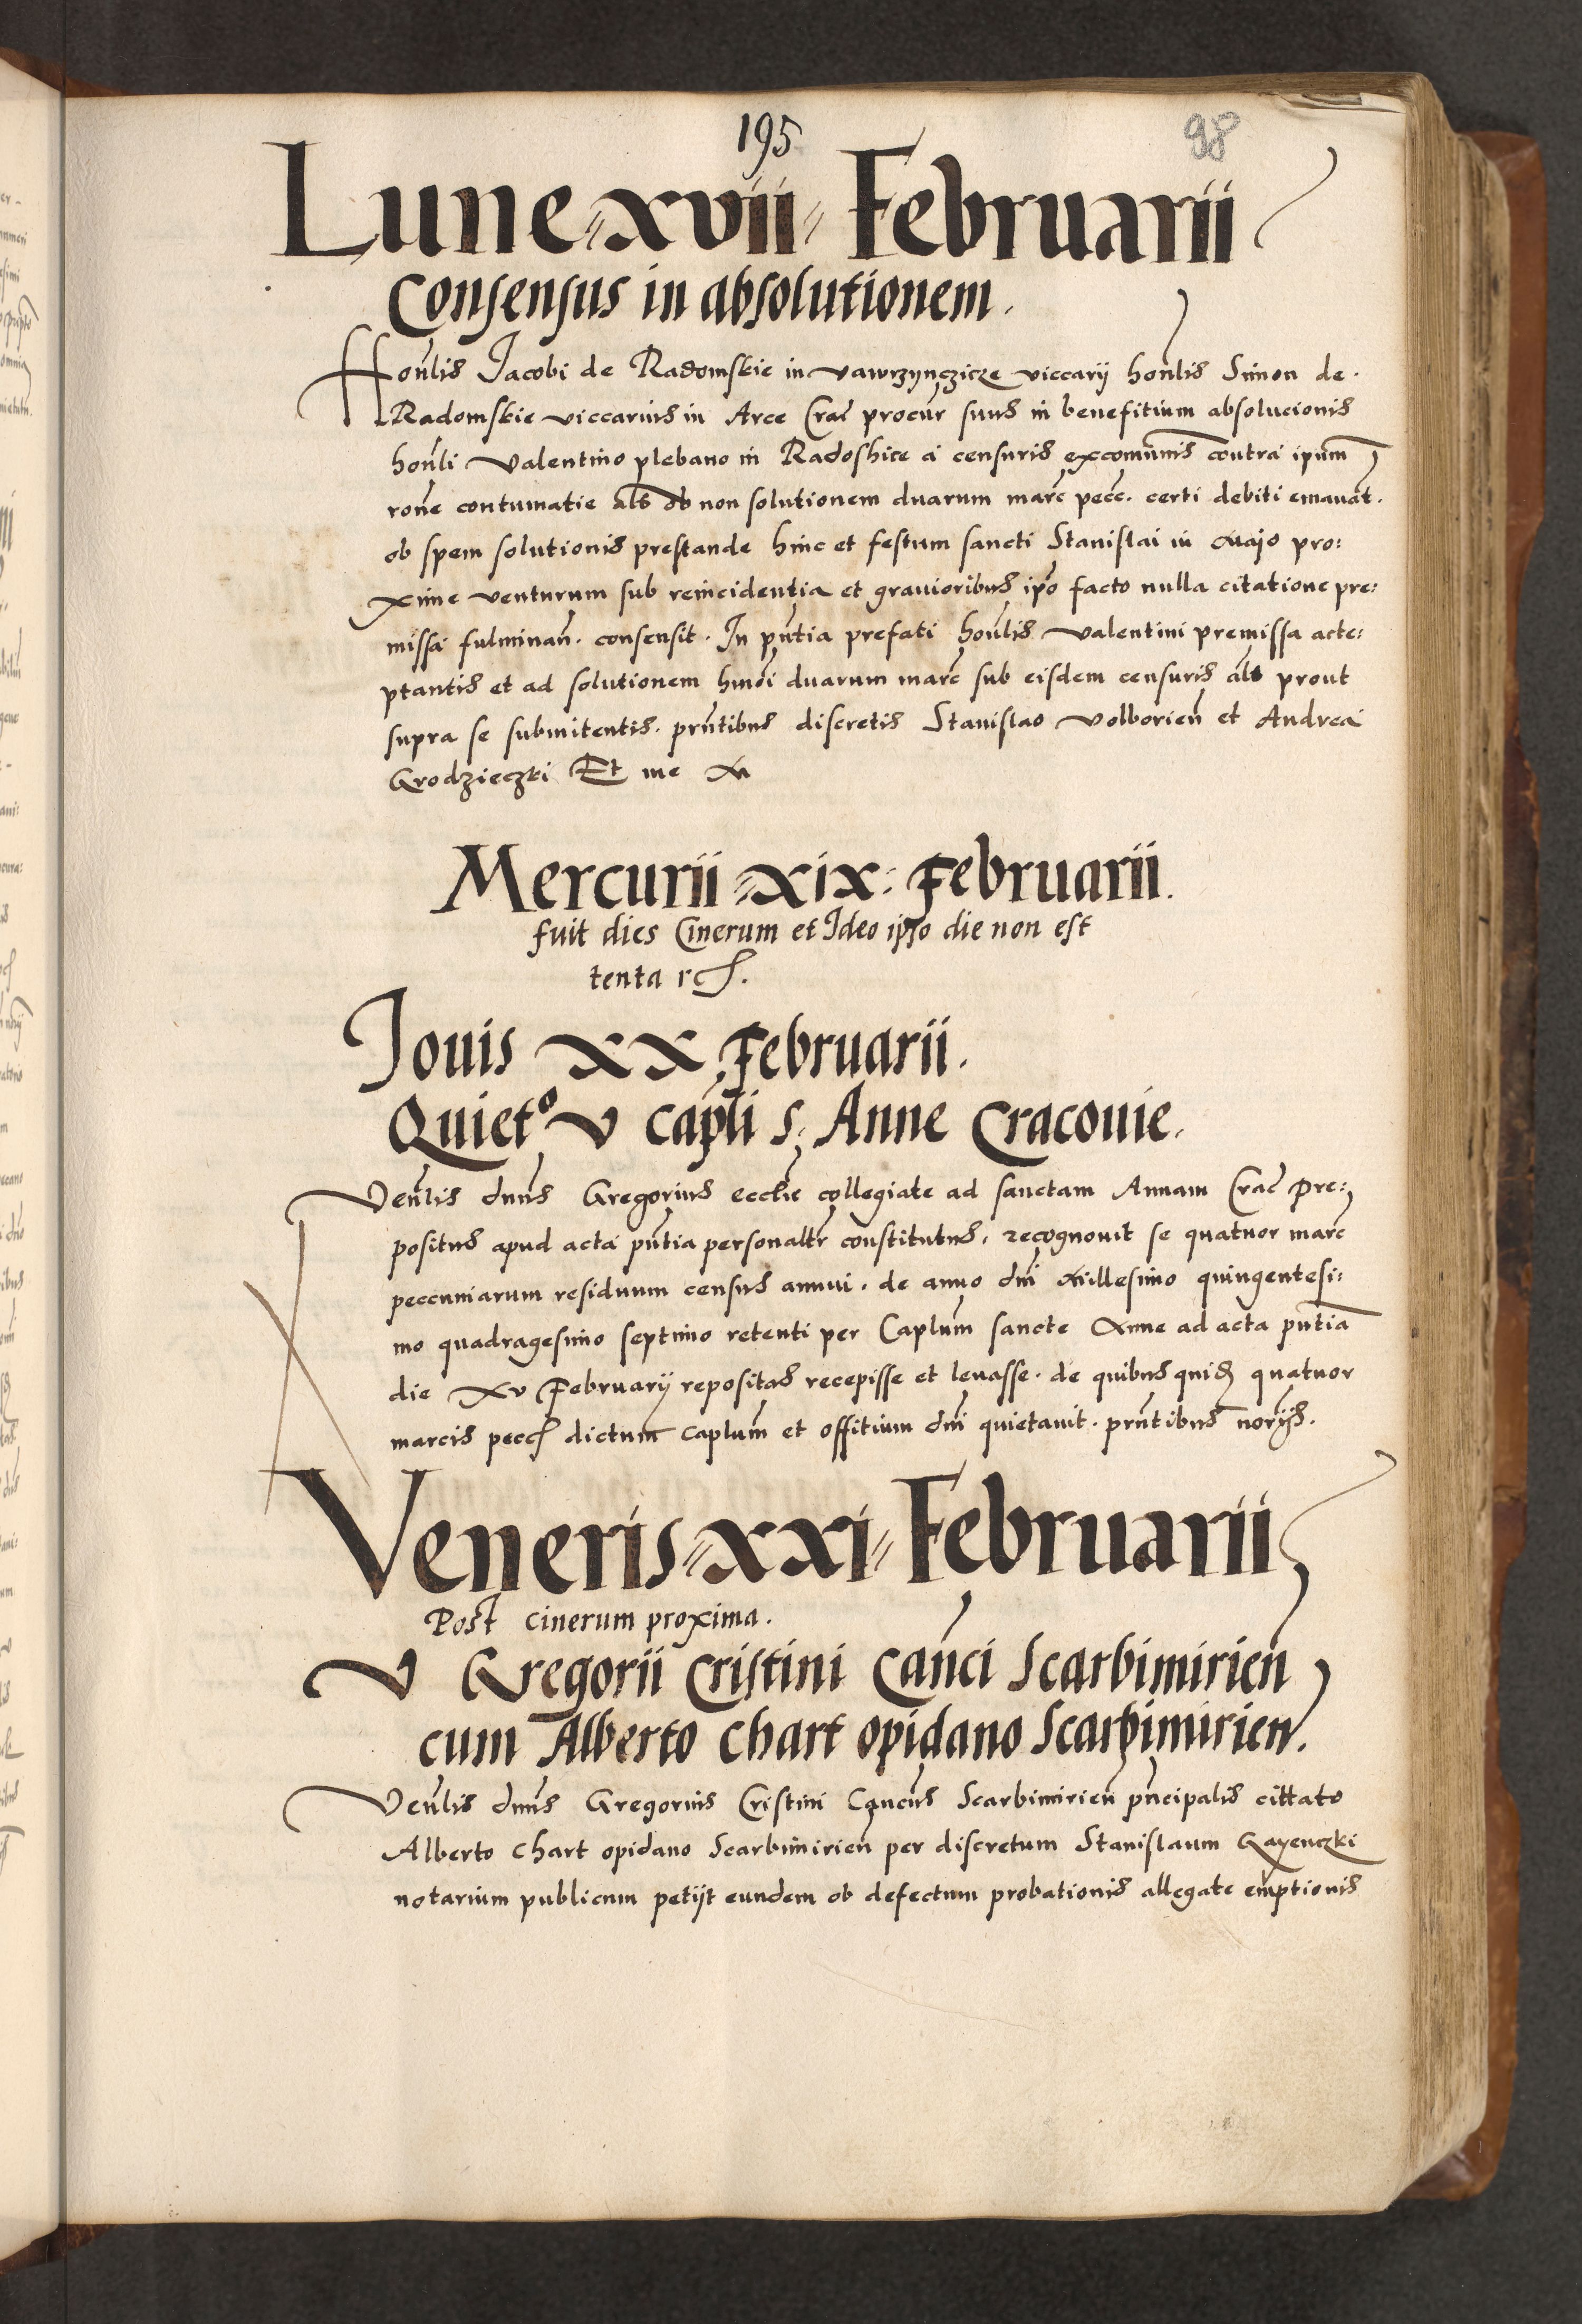 195
98
Lune xvii Februarii
Consensus in absolutionem.
Honlis Jacobi de Radomskie in vawrzynczicze viccarij honlis Simon de.
Radomskie viccarius in Arce Crac procur suus in benefitium absolucionis
honli Valentino plebano in Radoshice a censuris excomunis contra ipum
rone contumatie als ob non solutionem duarum marc pecc. certi debiti emanat.
ob spem solutionis prestande hinc et festum sancti Stanislai in Majo pro:
xime venturum sub reincidentia et gravioribus ipo facto nulla citatione pre:
missa fulminan. consensit. In pntia prefati honlis Valentini premissa acte:
ptantis et ad solutionem hmoi duarum marc sub eisdem censuris als prout
supra se submitentis. prntibus discretis Stanislao Volborien et Andrea
Grodzieczki Et me M
Mercurii xix: Februarii.
fuit dies Cinerum et Ideo ipso die non est
tenta rc.
Jouis XX Februarii.
Quieto V capli s: Anne Cracouie.
Venlis dnus Gregorius ecclie collegiate ad sanctam Annam Crac pre:
positus apud acta pntia personaltr constitutus, recognouit se quatuor marc
peccuniarum residuum census annui. de anno dni Millesimo quingentesi:
mo quadragesimo septimo retenti per Caplum sancte Anne ad acta pntia
die XV Februarij repositas recepisse et leuasse. de quibus quid quatuor
marcis pecc dictum caplum et offitium dni quietauit. prntibus norijs.
Veneris xxi Februarii
Post cinerum proxima.
V Gregorii Cristini Canci Scarbimirien
cum Alberto Chart opidano Scarbimirien.
Venlis dnus Gregorius Cristini Cancus Scarbimirien pncipalis cittato
Alberto Chart opidano Scarbimirien per discretum Stanislaum Gayenczki
notarium publicum petijt eundem ob defectum probationis allegate emptionis